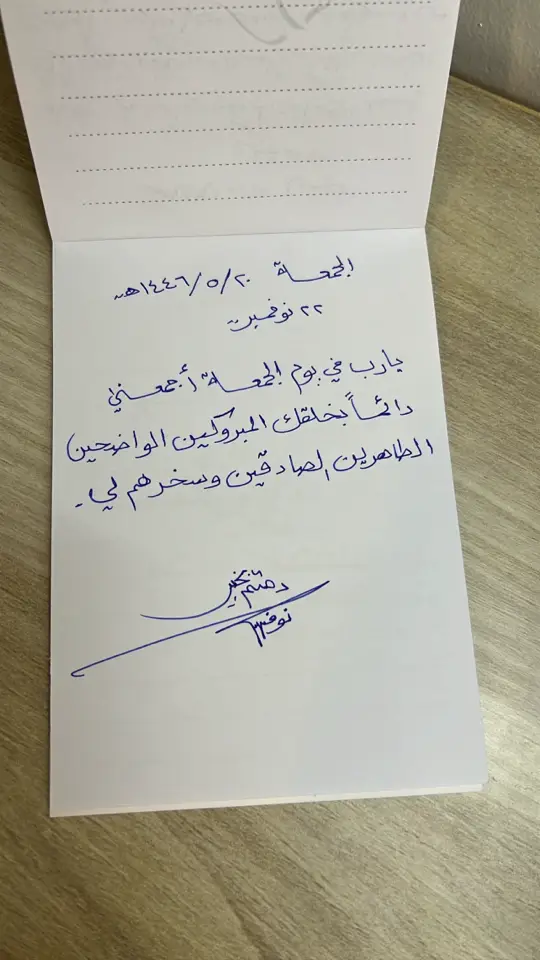 الجمعـــة ٢٠/٥/١٤٤٦هـ
٢٢ نوفمبر
يارب في يوم الجمعـــة أجمعني
دائمـــاً بخلقك المبروكين الواضحين
الطاهرين الصادقين وسخرهم لي.
دمتم بخير